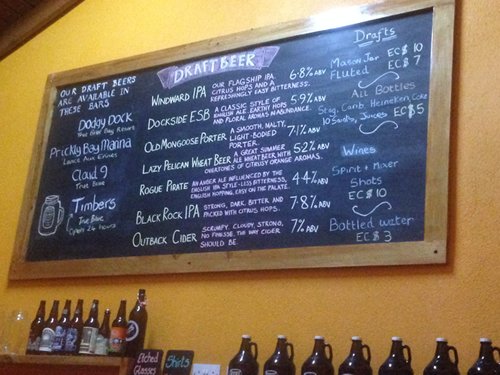 OUR DRAFT BEERS
ARE AVAILABLE IN
THESE BARS
Dodgy Dock
True Blue Bay Resort
Prickly Bay Marina
Lance Aux Epines
Cloud 9
True Blue
Timbers
True Blue
Open 24 hours
DRAFT BEER
WINDWARD IPA
OUR FLAGSHIP IPA.
CITRUS HOPS AND A
REFRESHINGLY EASY BITTERNESS.
6.8% ABV
DOCKSIDE ESB
A CLASSIC STYLE OF
ENGLISH ALE. EARTHY HOPS
AND FLORAL AROMAS IN ABUNDANCE.
5.9% ABV
OLD MONGOOSE PORTER
A SMOOTH, MALTY,
LIGHT-BODIED
PORTER.
7.1% ABV
LAZY PELICAN WHEAT BEER
A GREAT SUMMER
ALE WHEAT BEER WITH
OVERTONES OF CITRUSY ORANGE AROMAS.
5.2% ABV
ROGUE PIRATE
AN AMBER ALE INFLUENCED BY THE
ENGLISH IPA STYLE-LESS BITTERNESS,
ENGLISH HOPPING, EASY ON THE PALATE.
4.4% ABV
BLACK ROCK IPA
STRONG, DARK, BITTER AND
PACKED WITH CITRUS HOPS.
7.8% ABV
OUTBACK CIDER
SCRUMPY, CLOUDY, STRONG,
NO FINESSE, THE WAY CIDER
SHOULD BE
7% ABV
Drafts
Mason Jar EC$ 10
Fluted EC$ 7
All Bottles
Stag, Carib, Heineken, Coke
Juices EC$5
Wines
Spirit + Mixer
Shots
EC$ 10
Bottled water
EC$ 3
Etched
Glasses
Shirts